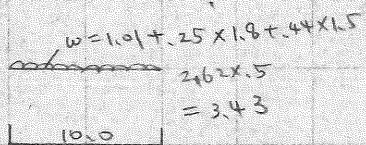 w=1.01+.25×1.8+.44×1.5
2.62×.5
=3.43
10.0